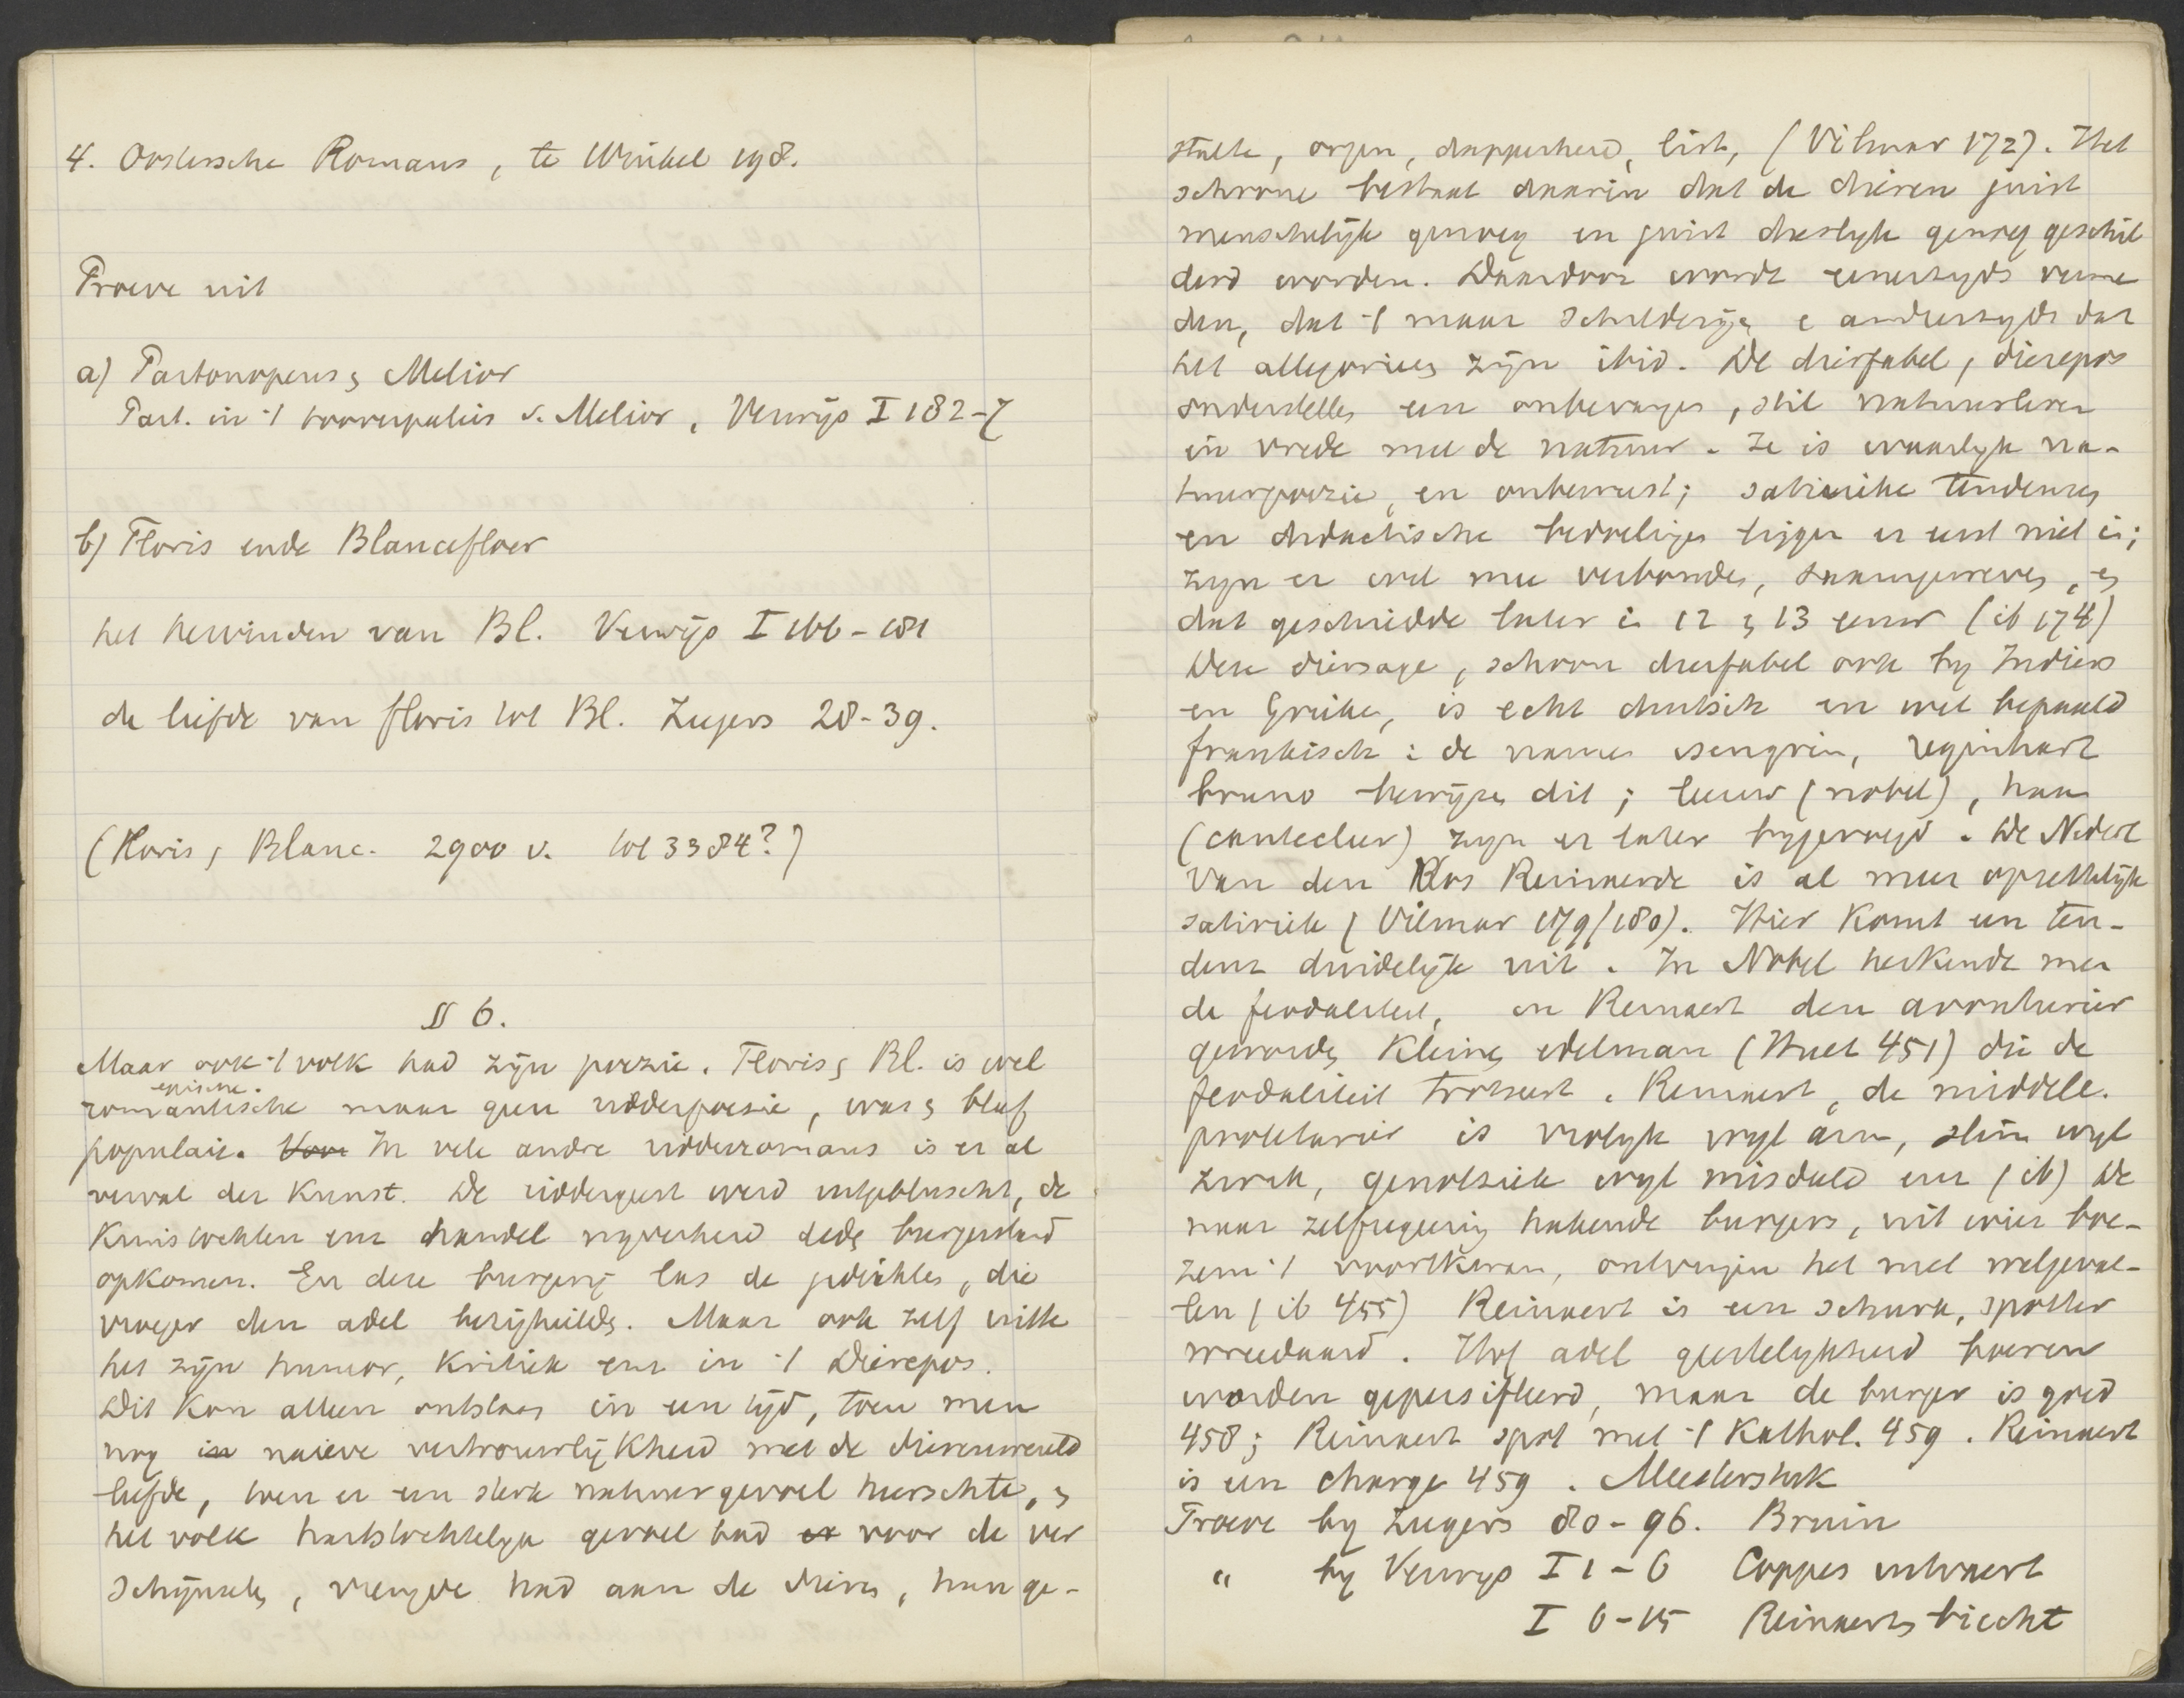 4. Oostersche Romans, te Winkel 198.
Proeve uit
a) Partonopeus & Melior
Part. in 't tooverpaleis v. Melior, Verwijs I 182-7
b) Floris ende Blancefloer
het hervinden van Bl. Verwijs I 166-181
de liefde van floris tot Bl. Zugers 28-39.
(Floris & Blanc. 2900 v. tot 3384?)
§ 6.
Maar ook 't volk had zijn poezie. Floris & Bl. is wel
epische.
romantische maar geen ridderpoesie, was & bleef
populair. Voor In vele andre ridderromans is er al
verval der Kunst. De riddergeest werd uitgebluscht, de
Kruistochten enz handel nyverheid dede burgerstand
opkomen. En deze burgerij las de gedichtes, die
vroeger den adel bezighields. Maar ook zelf uitte
het zijn humor, Kritiek enz in 't Dierepos.
Dit Kon alleen ontstaan in een tijd, toen men
nog in naieve vertrouwelijkheid met de dierenwereld
leefde, toen er een sterk natuurgevoel heerschte, &
het volk hartstochtelyk gevoel had er voor de ver
schijnsels, vreugde had aan de diere, hun ge-
stalte, orgen, dapperheid, list, (Vilmar 172). Het
schoone bestaat daarin dat de dieren juist
menschelijk genoeg en juist dierlyk genoeg geschil
derd worden. Daardoor wordt eenerzyds verme
den, dat 't maar schilderijen & anderzyds dat
het allegoriees zijn ibid. De dierfabel, dierepos
onderstelles een onbevangen, stil natuurleven
in vrede met de natuur. Ze is waarlyk na-
tuurpoezie, en onbewust; satirieke tendenzes
en didactische bedoelingen liggen er eerst niet in;
zyn er ook mee verbonden, saamgeweven, &
dat geschiedde later in 12 & 13 eeuw (ib 174)
Deze diersage, schoon dierfabel ook by Indiers
en Grieken, is echt duitsch en wel bepaald
frankisch: de namen isengrin, reginhart
bruno bewijzen dit; leeuw (nobel), haan
(cantecleer) zyn er later bygevoegd. De Nederl
Van den Vos Reinaerde is al meer opzettelijk
satiriek (Vilmar 179/180). Hier Komt een ten-
denz duidelijk uit. In Nobel herkende men
de feodaliteit, in Reinaert den avonturier
geworden Kleine edelman (Huet 451) die de
feodaliteit trotseert. Reinaert, de middele.
proletarier is vrolyk wyl arm, slim wyl
zwak, genotziek wyl misdeeld enz (ib) De
naar zelfregering hakende burgers, uit wier boe-
zem 't voortkwam, ontvingen het met welgeval-
len (ib 455) Reinaert is een schurk, spotter
wreedaard. Hof adel geestelykheid boeren
worden gepersifleerd, maar de burger is goed
458; Reinaert spot met 't Kathol. 459. Reinaert
is een charge 459. Meesterstuk
Proeve by Zugers 80-96. Bruin
" by Verwijs I 1-6 Coppes uitvaert
I 6-15 Reinaerts biecht